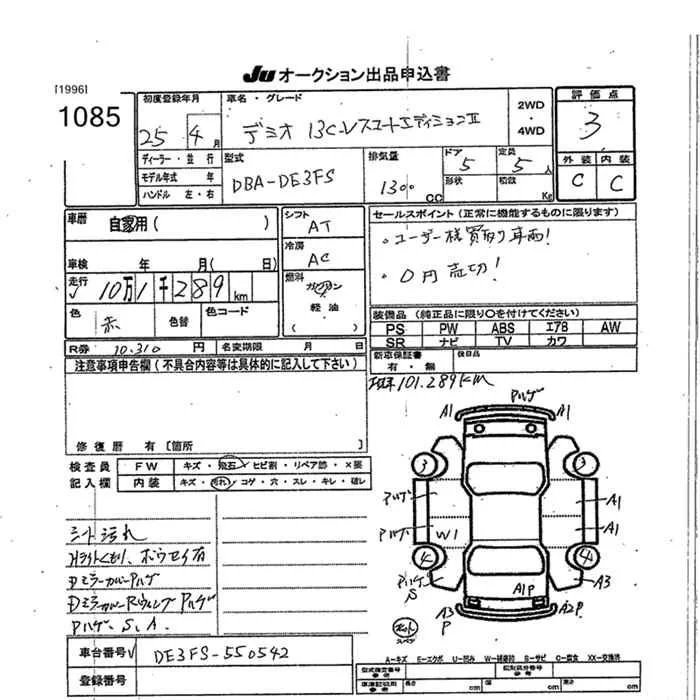 JU オークション出品申込書
[1996]
1085
初度登録年月
25 4月
車名・グレード
デミオ 13C-Vスマートエディション II
2WD
・
4WD
評価点
3
ディーラー・並行
モデル年式 年
ハンドル 左・右
型式
DBA-DE3FS
排気量
1300 CC
ドア 5
形状
定員 5人
積載 Kg
外装 内装
C C
車歴
自家用( )
シフト
AT
セールスポイント(正常に機能するものに限ります)
・ユーザー様買取り車両!
・0円売切!
車検 年 月( 日)
冷房
AC
走行
10万1千289km
燃料
ガソリン
軽油
色
赤
色替
色コード
装備品(純正品に限り○を付けてください)
PS PW ABS エアB AW
SR ナビ TV カワ
R券 10,310円 名変期限 月 日
新車保証書
有・無
後日品
注意事項申告欄(不具合内容等は具体的に記入して下さい)
101.289km
修復歴 有[箇所 ]
検査員
記入欄
FW キズ・飛石・ヒビ割・リペア跡・×要
内装 キズ・汚れ・コゲ・穴・スレ・キレ・破レ
シート汚れ
DミラーカバーPハゲ
Pハゲ、S、A
A1 Pハゲ A1
3 3
Pハゲ A1
Pハゲ W1 A1
4 4
Pハゲ S A3
A1P
A3 P A2P
スペア
車台番号 DE3FS-550542
登録番号
A-キズ E-エクボ U-凹み W-補修跡 S-サビ C-腐食 XX-交換済
型式指定番号
参考
類別区分番号
参考
長さ cm 幅 cm 高さ cm